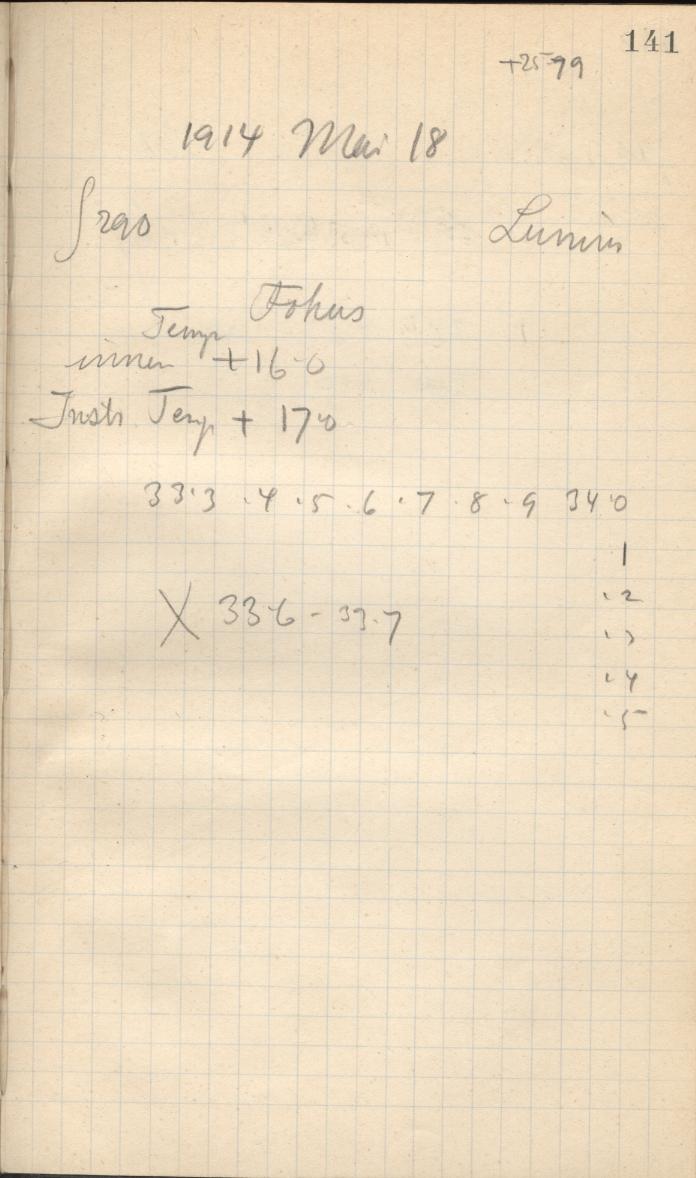 141
+25 99
1914 Mai 18
Lumin
Fokus
Temp
innen +16.0
Instr Temp + 17.0
33.3 .4 .5 .6 .7 .8 .9 34.0
1
.2
.3
.4
.5
X 33.6 - 33.7